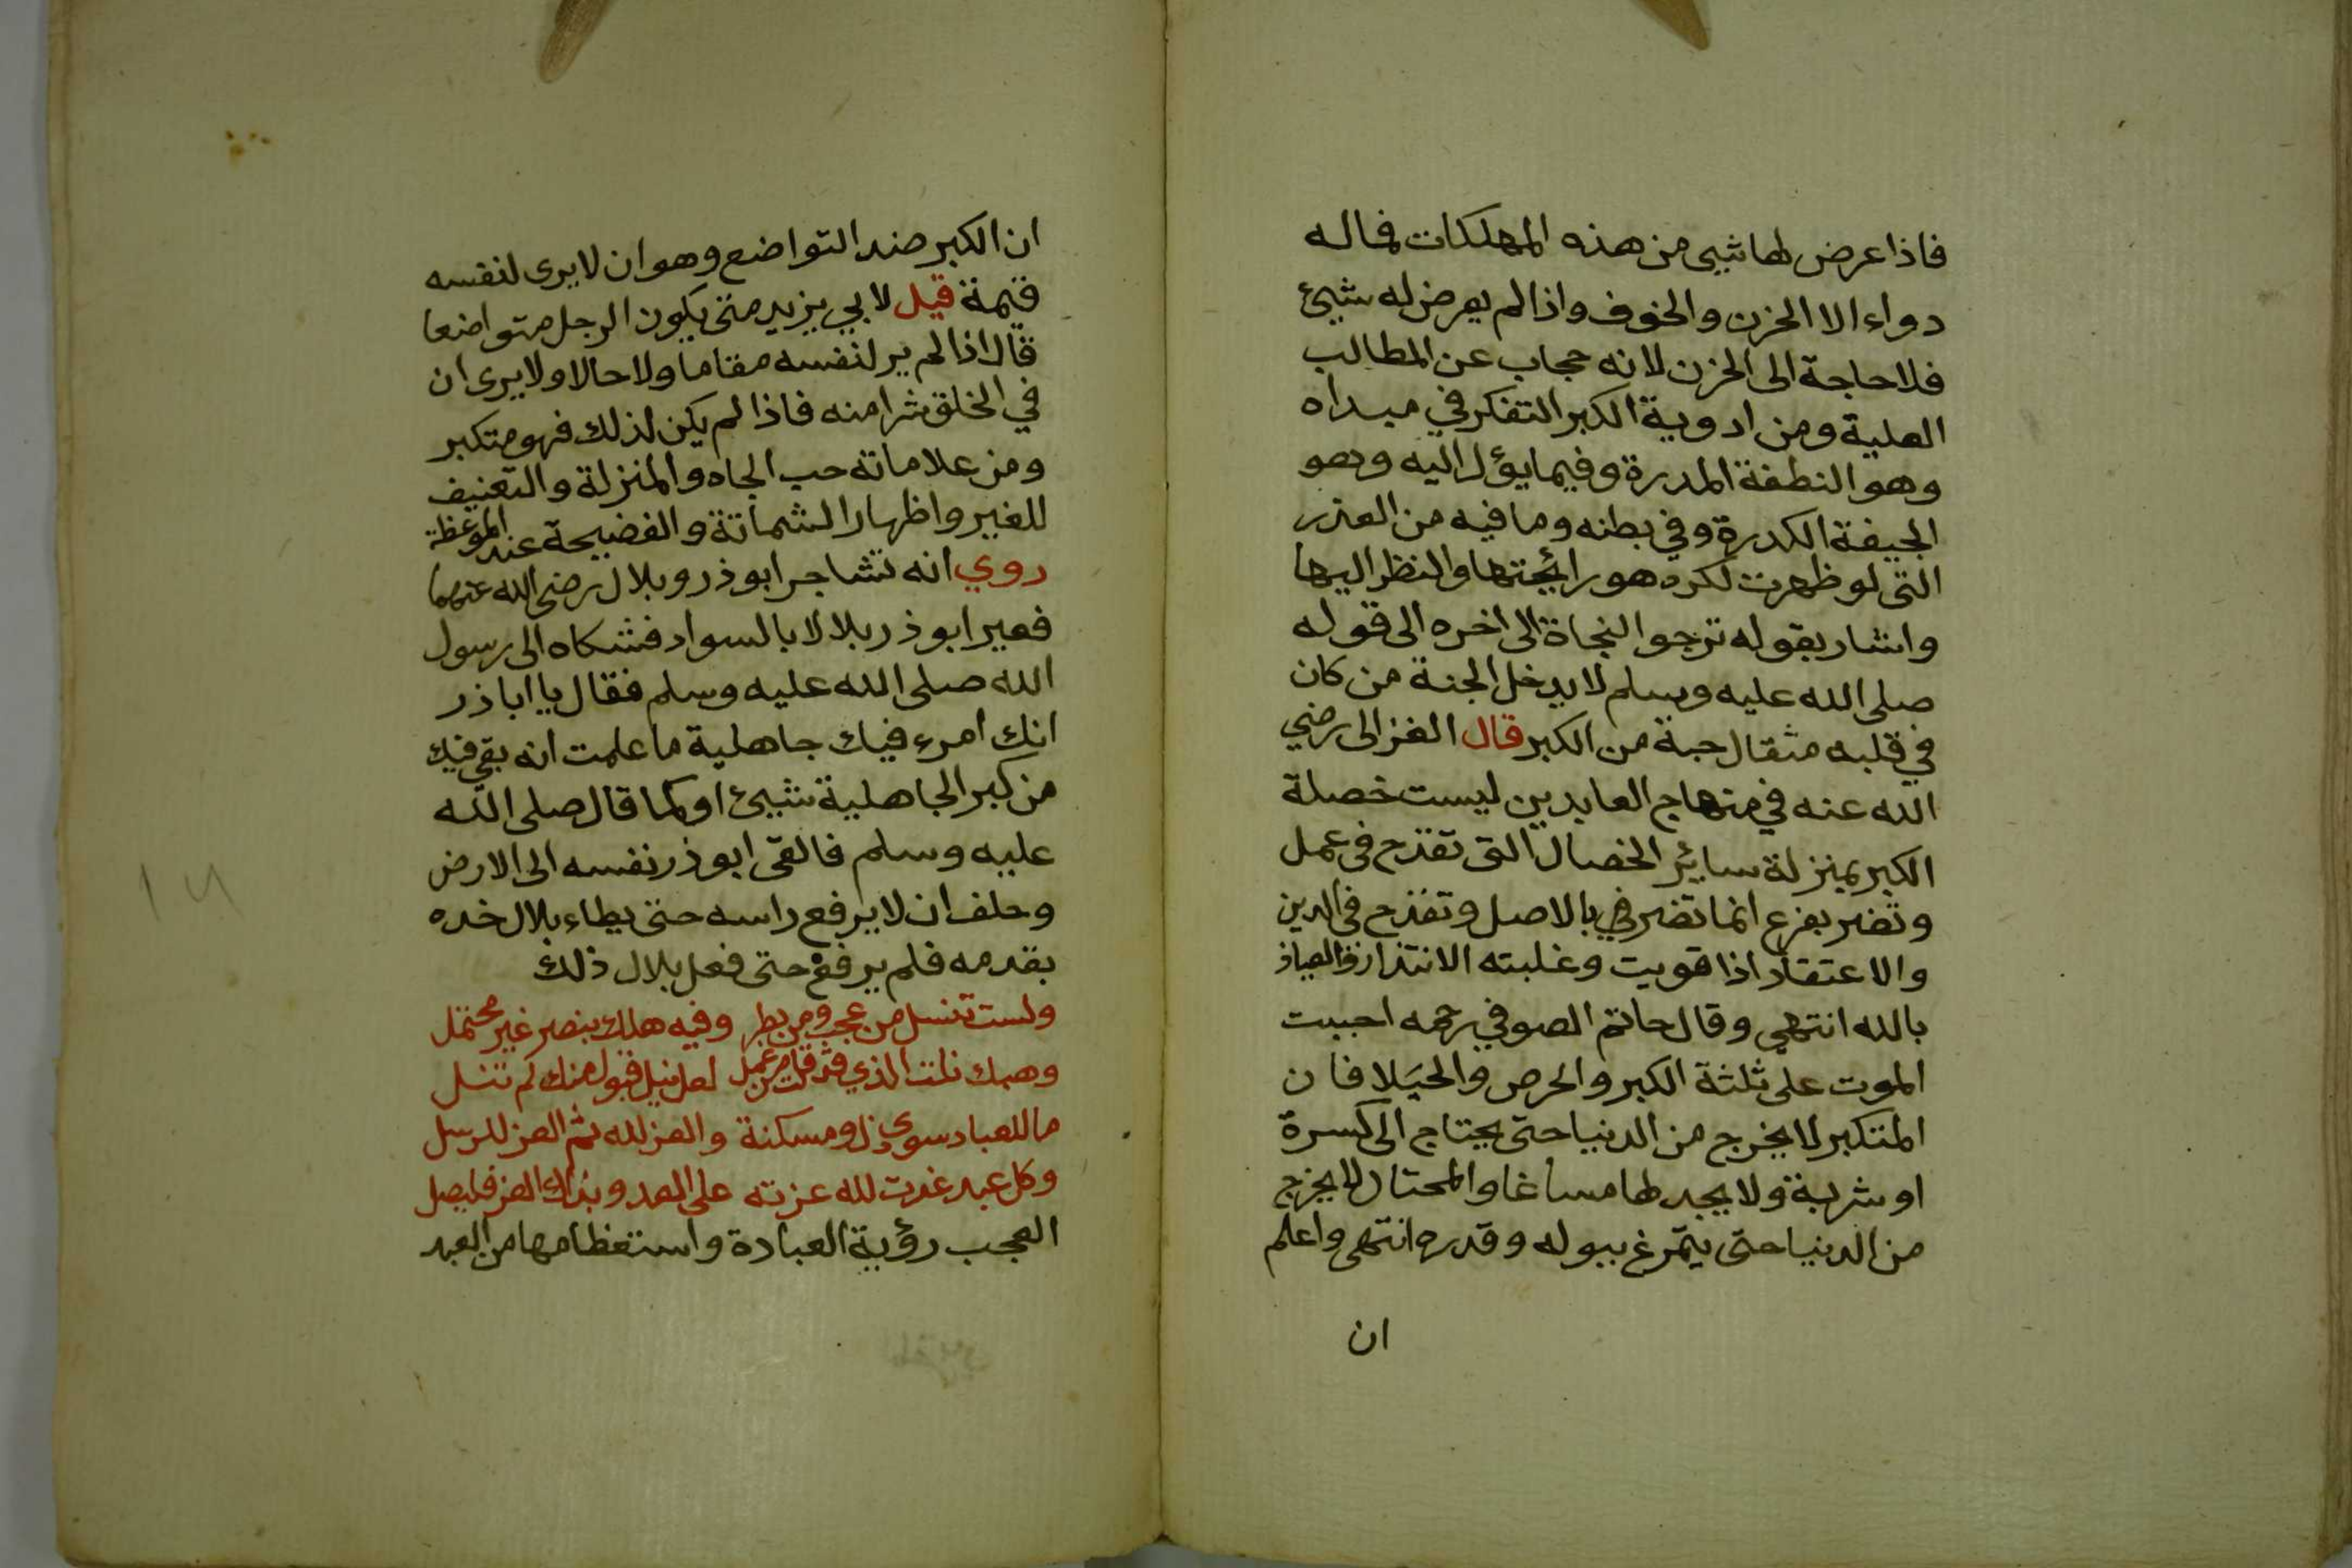 فاذا عرض لها شيى من هذه المهلكات فماله
دواء الا الحزن والخوف واذا لم يعرض له شيئ
فلا حاجة الى الحزن لانه حجاب عن المطالب
العلية ومن ادوية الكبر التفكر في مبداه
وهو النطفة المدرة وفيما يؤل اليه وهو
الجيفة الكدرة وفي بطنه وما فيه من العذر
التى لو ظهرت لكره هو رائحتها والنظر اليها
واشار بقوله ترجوا النجاة الى اخره الى قوله
صلى الله عليه وسلم لا يدخل الجنة من كان
في قلبه مثقال حبة من الكبر قال الغزالى رضي
الله عنه في منهاج العابدين ليست خصلة
الكبر بمنزلة سائر الخصال التى تقدح فى عمل
وتضر بفرع انما تضر في بالاصل وتقدح فى الدين
والاعتقاد اذا قويت وغلبته الا والعياذ
بالله انتهى وقال حاتم الصوفي رحمه احببت
الموت على ثلثة الكبر والحرص والخيلا فان
المتكبر لا يخرج من الدنيا حتى يحتاج الى كسرة
او شربة ولا يجد لها مساغا والمحتال لا يخرج
من الدنيا حتى يتمرغ ببوله وقدره انتهى واعلم
ان
ان الكبر ضد التواضع وهو ان لا يرى لنفسه
قيمة قيل لابي يزيد متى يكون الرجل متواضعا
قال اذا لم ير لنفسه مقاما ولا حالا ولا يرى ان
في الخلق شرا منه فاذا لم يكن لذلك فهو متكبر
ومن علاماته حب الجاه والمنزلة والتعنيف
للغير واظهار الشماتة والفضيحة عند الموعظة
روي انه تشاجر ابو ذر وبلال رضى الله عنهما
فعير ابو ذر بلالا بالسواد فشكاه الى رسول
الله صلى الله عليه وسلم فقال يا ابا ذر
انك امرء فيك جاهلية ما علمت انه بقي فيك
من كبر الجاهلية شيئ او كما قال صلى الله
عليه وسلم فالقى ابو ذر نفسه الى الارض
وحلف ان لا يرفع راسه حتى يطاء بلال خده
بقدمه فلم يرفع حتى فعل بلال ذلك
ولست تنسل من عجب ومن بطر وفيه هلك بنصر غير محتمل
وهبك نلت الذي قد قلت من عمل لعل نيل قبول منك لم تنل
ما للعباد سوى ذل ومسكنة والعز لله ثم العز للرسل
وكل عبد غدت لله عزته على العد وبذاك العز فليصل
العجب رؤية العبادة واستعظامها من العبد